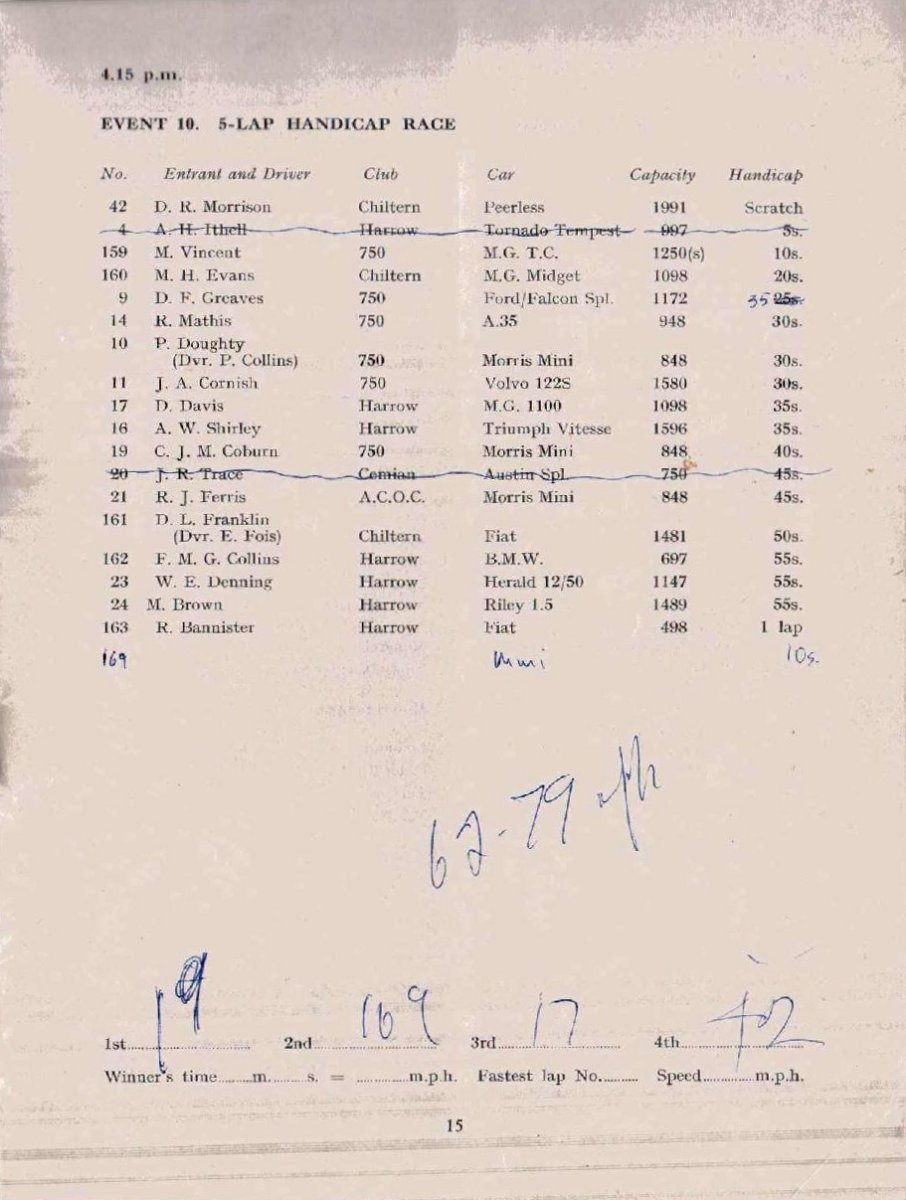 4.15 p.m.
EVENT 10. 5-LAP HANDICAP RACE
No. Entrant and Driver Club Car Capacity Handicap
42 D. R. Morrison Chiltern Peerless 1991 Scratch
4 A. H. Ithell Harrow Tornado Tempest 997 5s.
159 M. Vincent 750 M.G. T.C. 1250(s) 10s.
160 M. H. Evans Chiltern M.G. Midget 1098 20s.
9 D. F. Greaves 750 Ford/Falcon Spl. 1172 35 25s.
14 R. Mathis 750 A.35 948 30s.
10 P. Doughty
(Dvr. P. Collins) 750 Morris Mini 848 30s.
11 J. A. Cornish 750 Volvo 122S 1580 30s.
17 D. Davis Harrow M.G. 1100 1098 35s.
16 A. W. Shirley Harrow Triumph Vitesse 1596 35s.
19 C. J. M. Coburn 750 Morris Mini 848 40s.
20 J. R. Trace Cemian Austin Spl. 750 45s.
21 R. J. Ferris A.C.O.C. Morris Mini 848 45s.
161 D. L. Franklin
(Dvr. E. Fois) Chiltern Fiat 1481 50s.
162 F. M. G. Collins Harrow B.M.W. 697 55s.
23 W. E. Denning Harrow Herald 12/50 1147 55s.
24 M. Brown Harrow Riley 1.5 1489 55s.
163 R. Bannister Harrow Fiat 498 1 lap
169 Mini 10s.
62.79 mph
1st 19 2nd 169 3rd 17 4th 42
Winner's time........m........s. = ............m.p.h. Fastest lap No......... Speed............m.p.h.
15